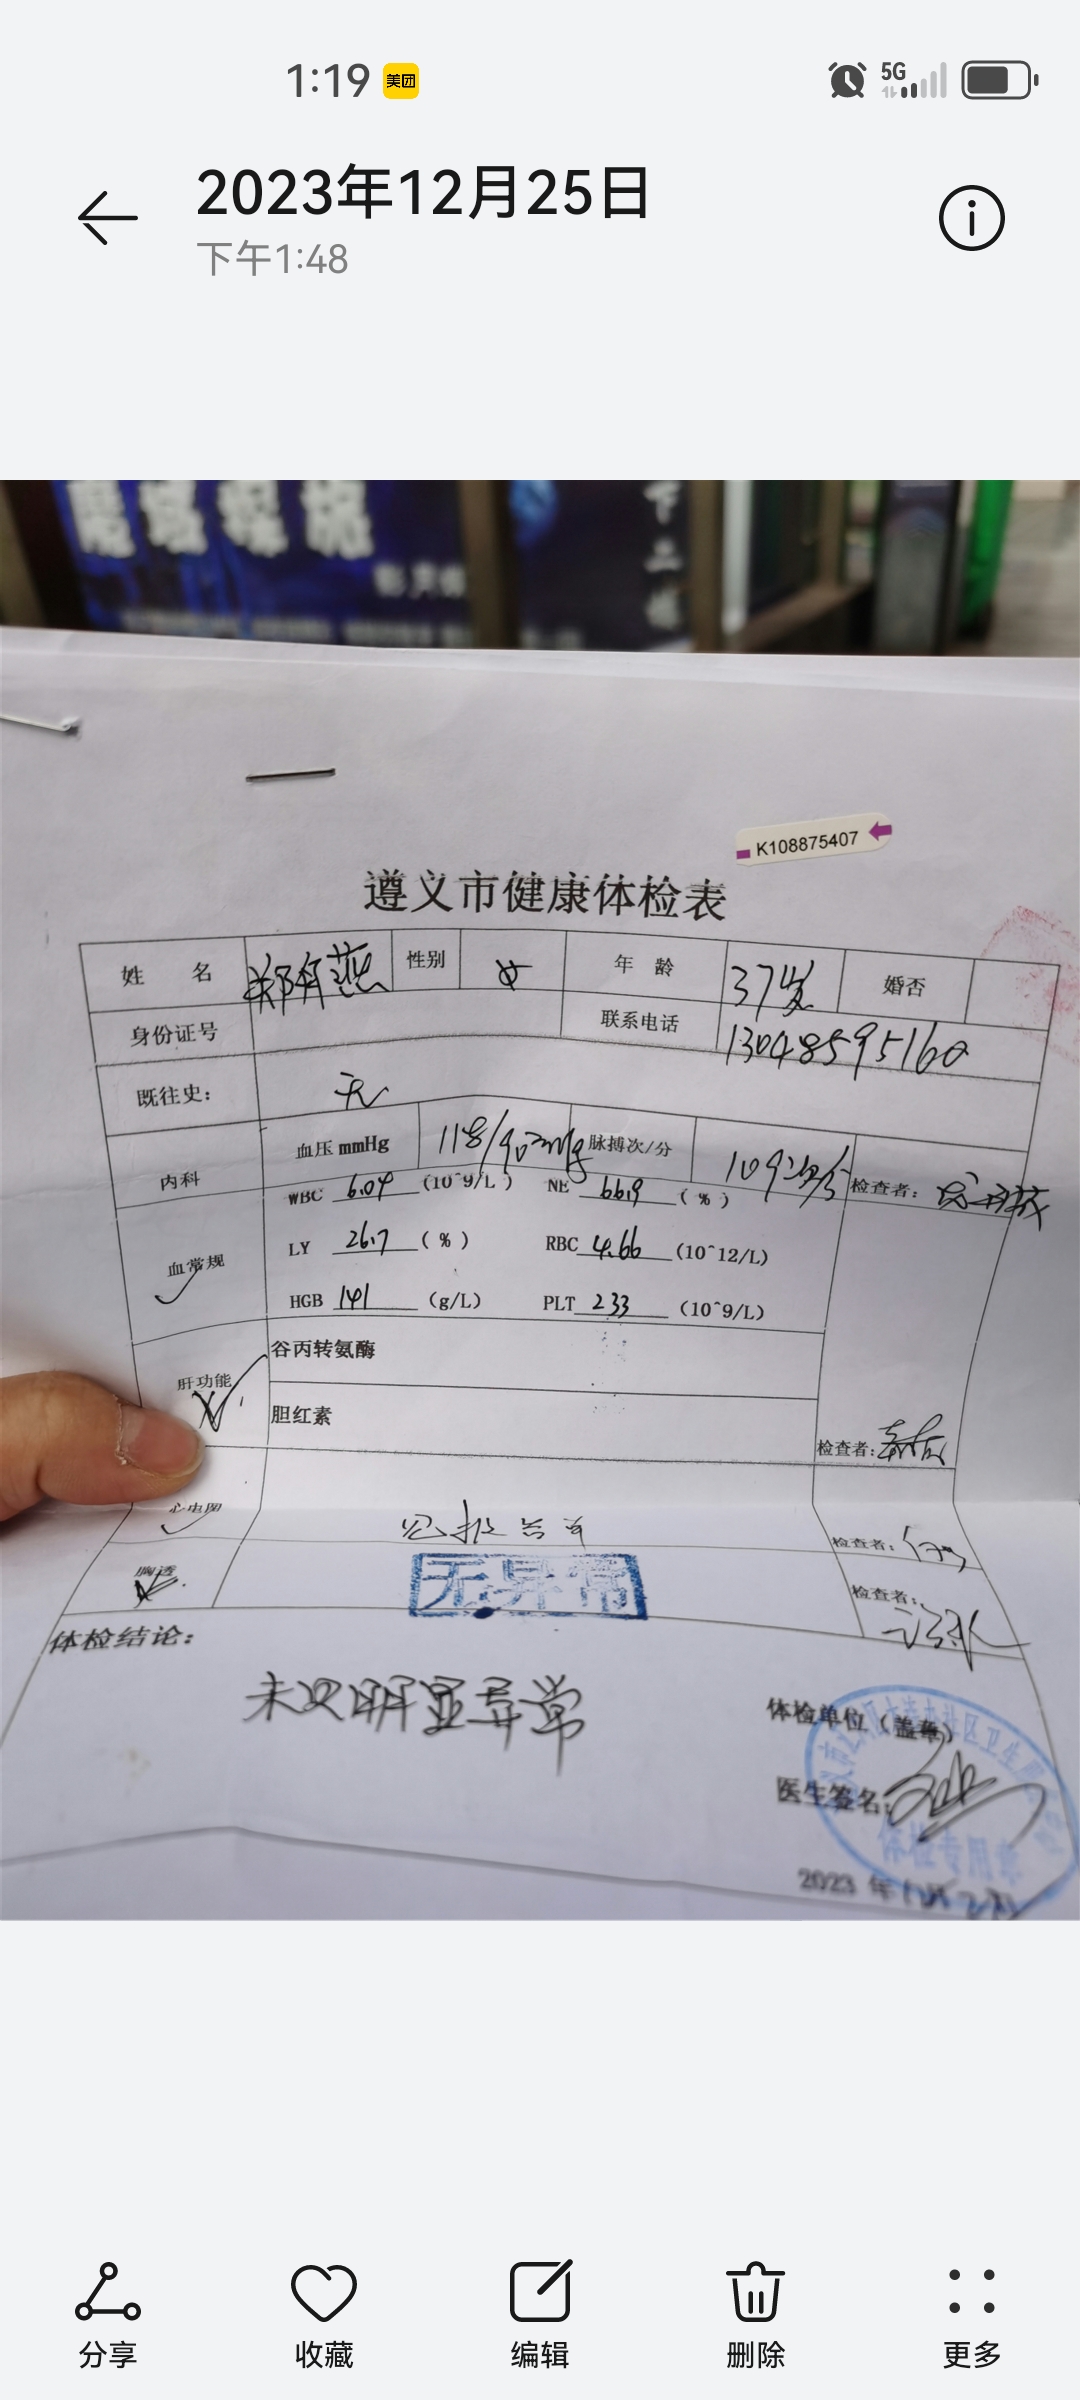 1:19 美团 5G
2023年12月25日
下午1:48
K108875407
遵义市健康体检表
姓 名 郑有燕 性别 女 年 龄 37岁 婚否
身份证号 联系电话 13048595160
既往史: 无
内科 血压mmHg 118/90mmHg 脉搏次/分 109次/分 检查者:
WBC 6.04 (10^9/L) NE 66.9 (%)
血常规 LY 26.7 (%) RBC 4.66 (10^12/L)
HGB 141 (g/L) PLT 233 (10^9/L)
肝功能 谷丙转氨酶
胆红素
检查者:
心电图 见报告单 检查者:
胸透 无异常 检查者:
体检结论:
未见明显异常
体检单位(盖章)
医生签名:
体检专用章
2023 年
分享 收藏 编辑 删除 更多